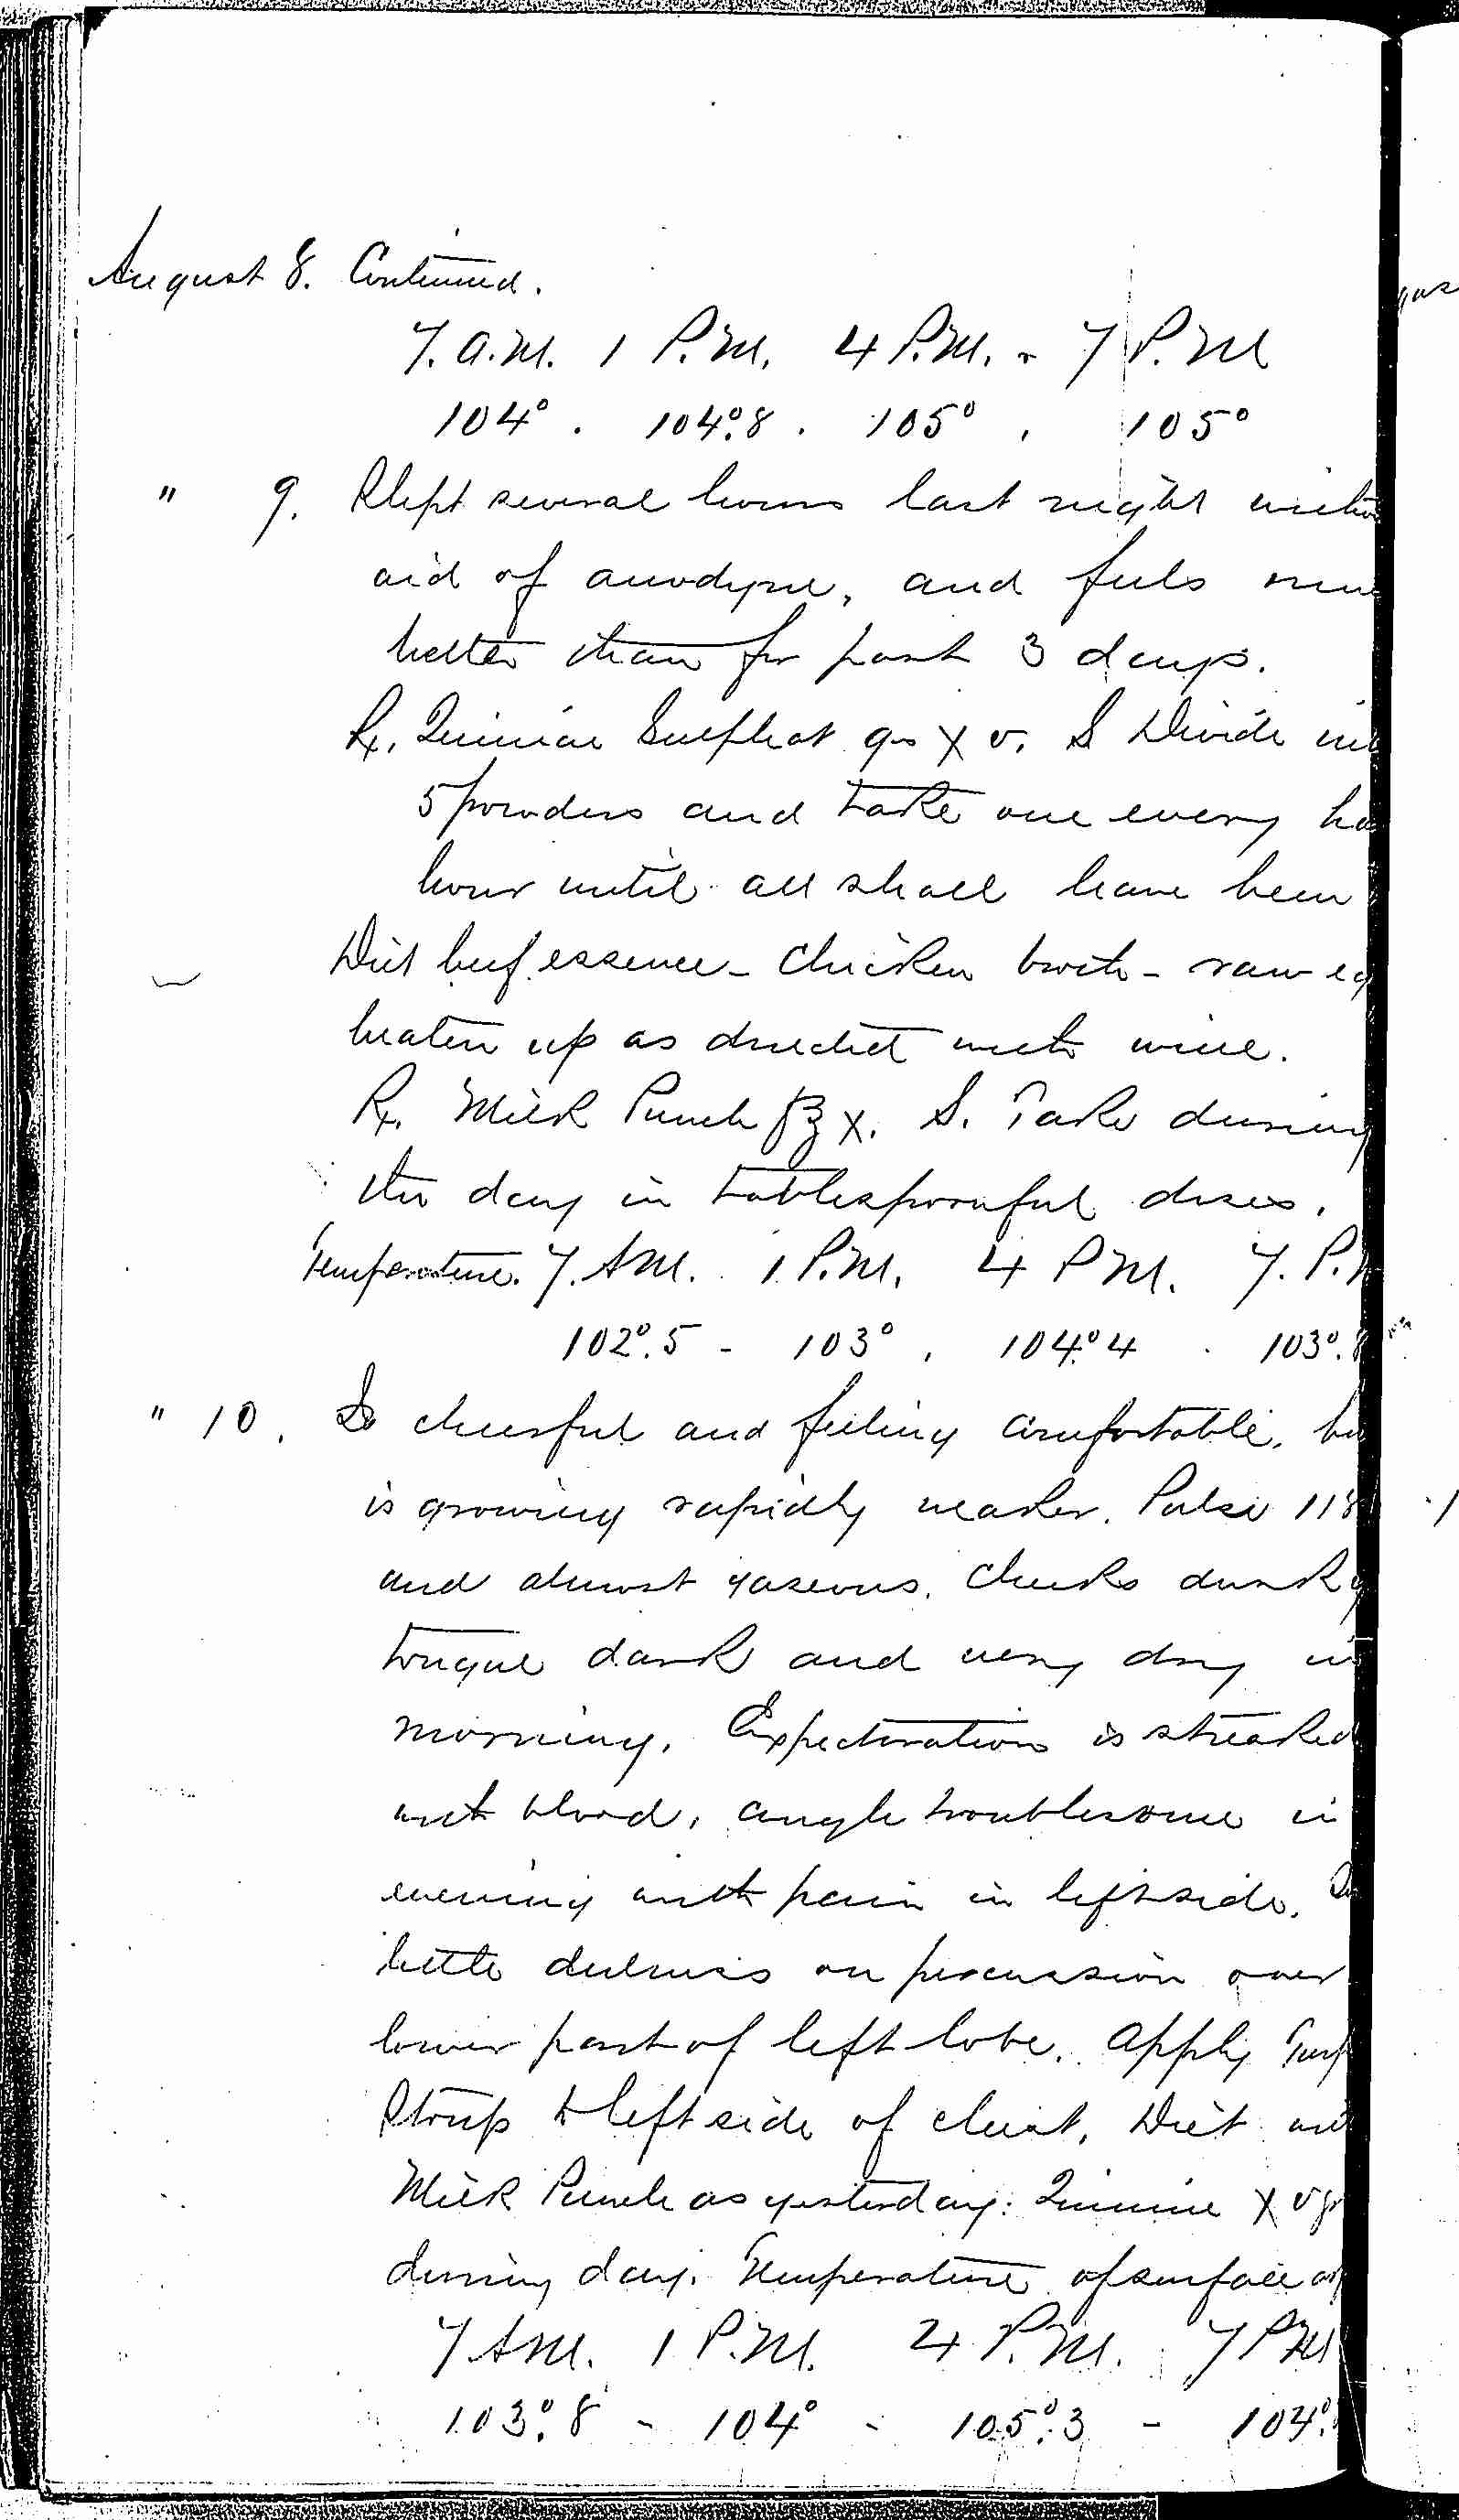 August 8. Continued.
7. A.M. 1 P.M. 4 P.M. 7 P.M
104° . 104°.8 . 105° , 105°
" 9. Slept several hours last night witho
aid of anodyne, and feels mu
better than for past 3 days.
℞. Quiniae Sulphat grs xv. S Divide in
5 powders and take one every ha
hour until all shall have been
Diet beef essence - Chicken broth - raw eg
beaten up as directed with wine.
℞. Milk Punch f℥ x. S. Take during
the day in tablespoonful doses.
Temperature. 7. AM. 1. P.M. 4 PM. 7. P.
102°.5 - 103° , 104°.4 . 103°.8
" 10. Is cheerful and feeling comfortable, bu
is growing rapidly weaker. Pulse 118
and almost gaseous. Cheeks dusky
tongue dark and very dry in
morning. Expectoration is streaked
with blood, cough troublesome in
evening with pain in left side.
little dulness on percussion over
lower part of left lobe. Apply Turp
Stoup to left side of chest. Diet
Milk Punch as yesterday: Quinine xv gr
during day. Temperature of surface
7 AM. 1 P.M. 4 P.M. 7 PM
103°.8 - 104° - 105°.3 - 104°.